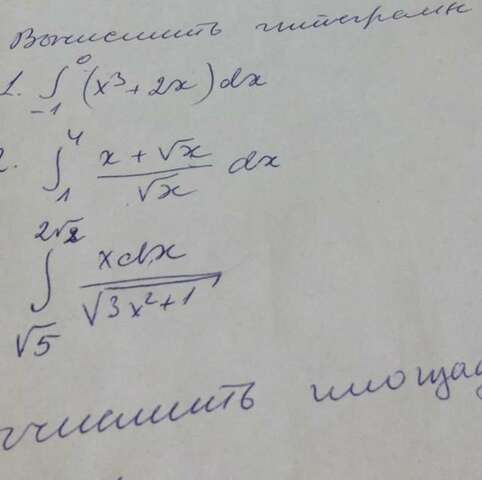 Вычислить интегралы
1. ∫₋₁⁰ (x³ + 2x) dx
2. ∫₁⁴ (x + √x)/√x dx
∫_√5^2√2 xdx/√(3x² + 1)
числить площад